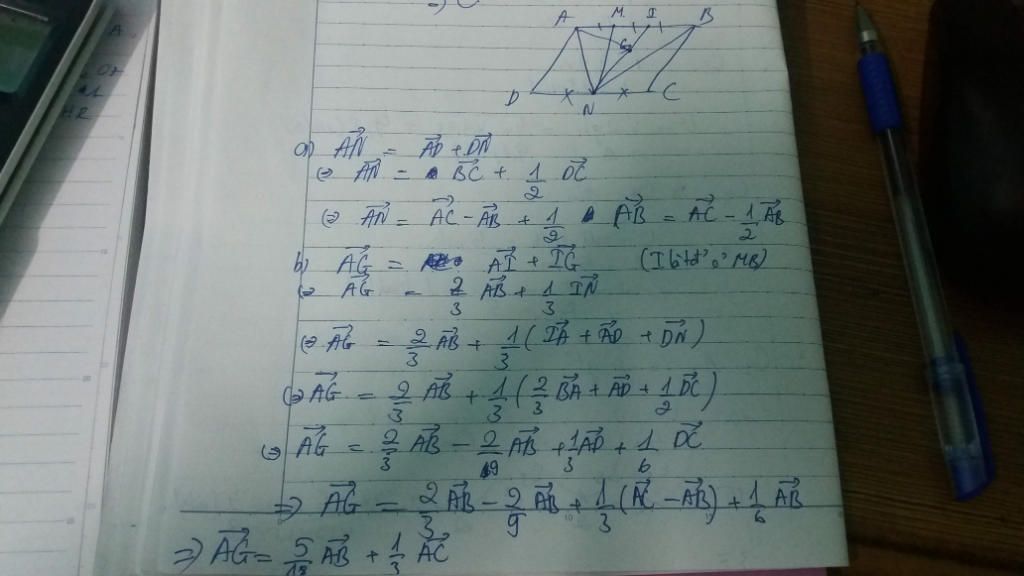 A M I B
G
D N C
a) $\overrightarrow{AN} = \overrightarrow{AD} + \overrightarrow{DN}$
⇔ $\overrightarrow{AN} = \overrightarrow{BC} + \frac{1}{2} \overrightarrow{DC}$
⇔ $\overrightarrow{AN} = \overrightarrow{AC} - \overrightarrow{AB} + \frac{1}{2} \overrightarrow{AB} = \overrightarrow{AC} - \frac{1}{2} \overrightarrow{AB}$
b) $\overrightarrow{AG} = \overrightarrow{AI} + \overrightarrow{IG}$ (I là tđ MB)
⇔ $\overrightarrow{AG} = \frac{2}{3} \overrightarrow{AB} + \frac{1}{3} \overrightarrow{IN}$
⇔ $\overrightarrow{AG} = \frac{2}{3} \overrightarrow{AB} + \frac{1}{3} (\overrightarrow{IA} + \overrightarrow{AD} + \overrightarrow{DN})$
⇔ $\overrightarrow{AG} = \frac{2}{3} \overrightarrow{AB} + \frac{1}{3} (\frac{2}{3} \overrightarrow{BA} + \overrightarrow{AD} + \frac{1}{2} \overrightarrow{DC})$
⇔ $\overrightarrow{AG} = \frac{2}{3} \overrightarrow{AB} - \frac{2}{9} \overrightarrow{AB} + \frac{1}{3} \overrightarrow{AD} + \frac{1}{6} \overrightarrow{DC}$
⇒ $\overrightarrow{AG} = \frac{2}{3} \overrightarrow{AB} - \frac{2}{9} \overrightarrow{AB} + \frac{1}{3} (\overrightarrow{AC} - \overrightarrow{AB}) + \frac{1}{6} \overrightarrow{AB}$
⇒ $\overrightarrow{AG} = \frac{5}{18} \overrightarrow{AB} + \frac{1}{3} \overrightarrow{AC}$